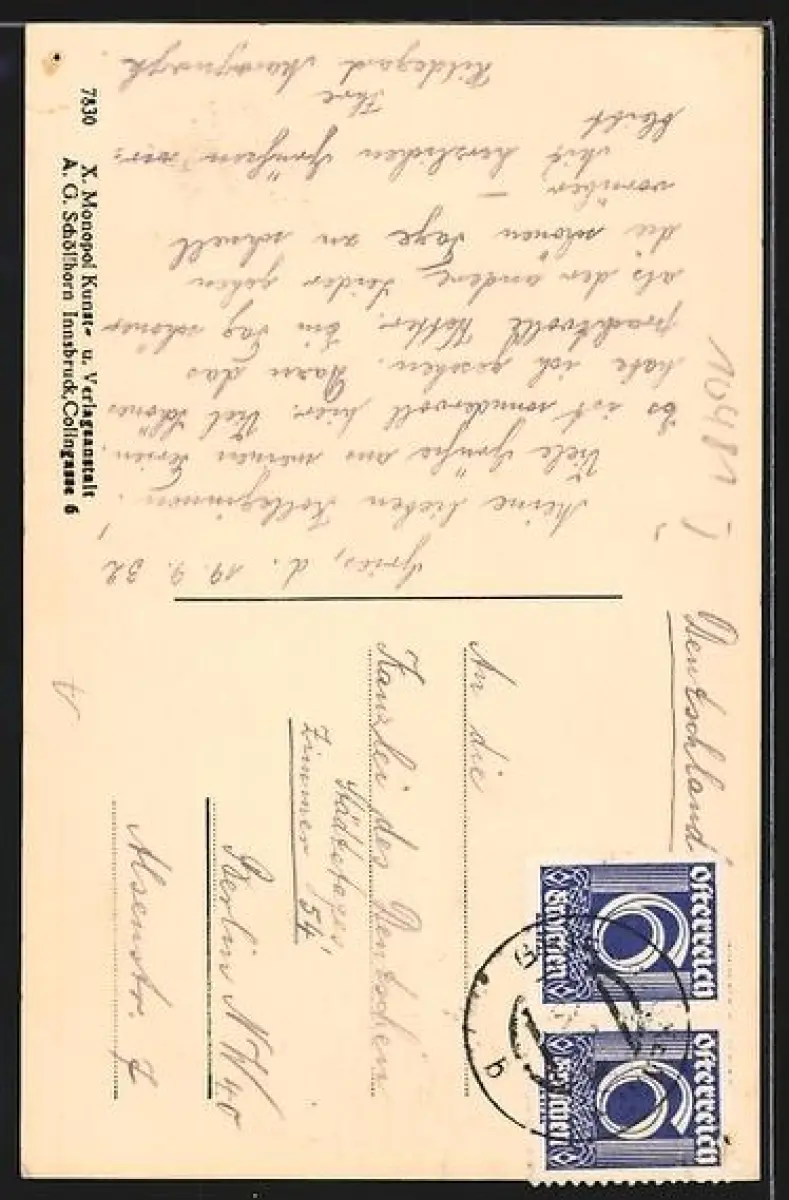 Gries, d. 19.9.32
Meine lieben Kolleginnen!
Viele Grüße aus meinen Ferien.
Es ist wundervoll hier. Viel Schönes
habe ich gesehen. Dazu das
prachtvolle Wetter. Ein Tag schöner
als der andere. Leider gehen
die schönen Tage zu schnell
vorüber –
Mit herzlichen Grüßen
bleibt
Ihre
Hildegard
10481
Deutschland
An die
Kanzlei des Deutschen
Städtetages
Zimmer 54
Berlin NW 40
Alsenstr. 7
7830
X. Monopol Kunst- u. Verlagsanstalt
A. G. Schöllhorn Innsbruck, Colingasse 6
Österreich
6
Groschen
Österreich
6
Groschen
b